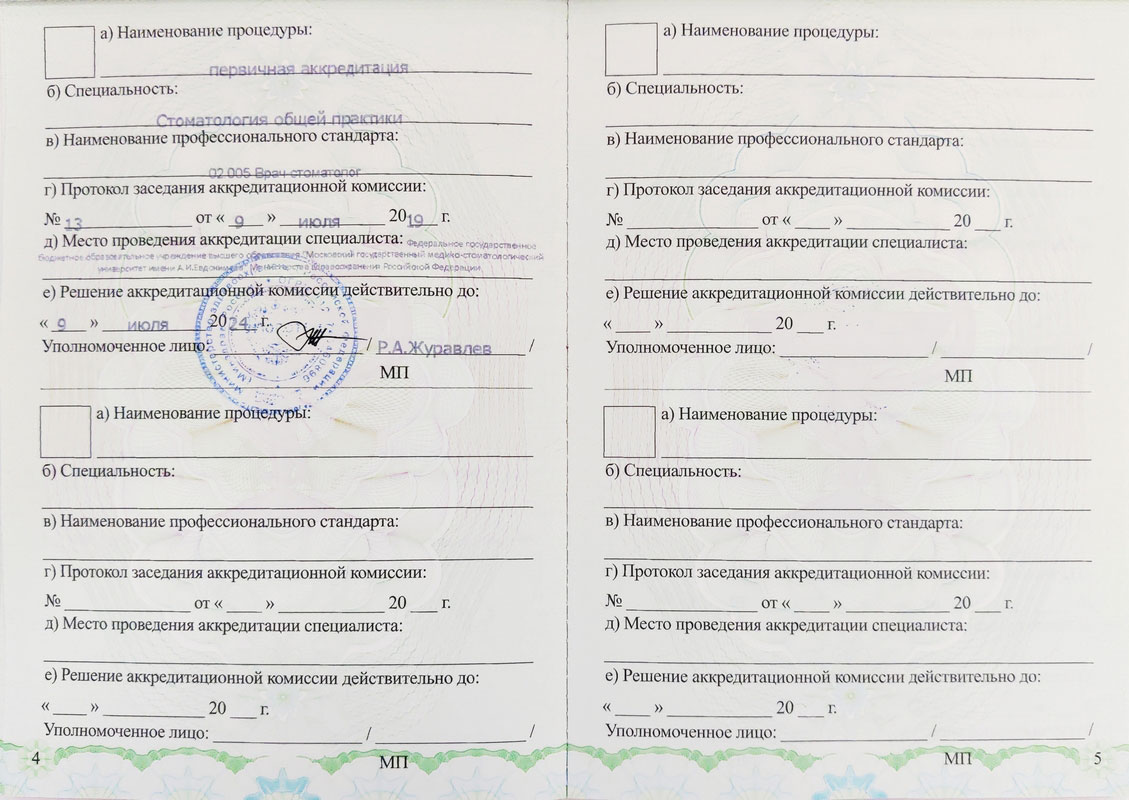 а) Наименование процедуры:
первичная аккредитация
б) Специальность:
Стоматология общей практики
в) Наименование профессионального стандарта:
02.005 Врач-стоматолог
г) Протокол заседания аккредитационной комиссии:
№ 13 от « 9 » июля 2019 г.
д) Место проведения аккредитации специалиста: Федеральное государственное
бюджетное образовательное учреждение высшего "Московский государственный медико-стоматологический
университет имени А.И.Евдокимова" Министерства здравоохранения Российской Федерации
е) Решение аккредитационной комиссии действительно до:
« 9 » июля 2024 г.
Уполномоченное лицо: / Р.А.Журавлев /
МП
а) Наименование процедуры:
б) Специальность:
в) Наименование профессионального стандарта:
г) Протокол заседания аккредитационной комиссии:
№ ____ от « ____ » ____ 20 ___ г.
д) Место проведения аккредитации специалиста:
е) Решение аккредитационной комиссии действительно до:
« ____ » ____ 20 ___ г.
Уполномоченное лицо: ____ / ____ /
4
МП
а) Наименование процедуры:
б) Специальность:
в) Наименование профессионального стандарта:
г) Протокол заседания аккредитационной комиссии:
№ ____ от « ____ » ____ 20 ___ г.
д) Место проведения аккредитации специалиста:
е) Решение аккредитационной комиссии действительно до:
« ____ » ____ 20 ___ г.
Уполномоченное лицо: ____ / ____ /
МП
а) Наименование процедуры:
б) Специальность:
в) Наименование профессионального стандарта:
г) Протокол заседания аккредитационной комиссии:
№ ____ от « ____ » ____ 20 ___ г.
д) Место проведения аккредитации специалиста:
е) Решение аккредитационной комиссии действительно до:
« ____ » ____ 20 ___ г.
Уполномоченное лицо: ____ / ____ /
МП
5